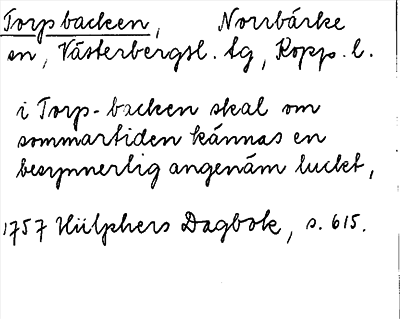 Torpbacken, Norrbärke
sn, Västerbergsl. tg, Kopp. l.
i Torp-backen skal om
sommartiden kännas en
besynnerlig angenäm luckt,
1757 Hülphers Dagbok, s. 615.